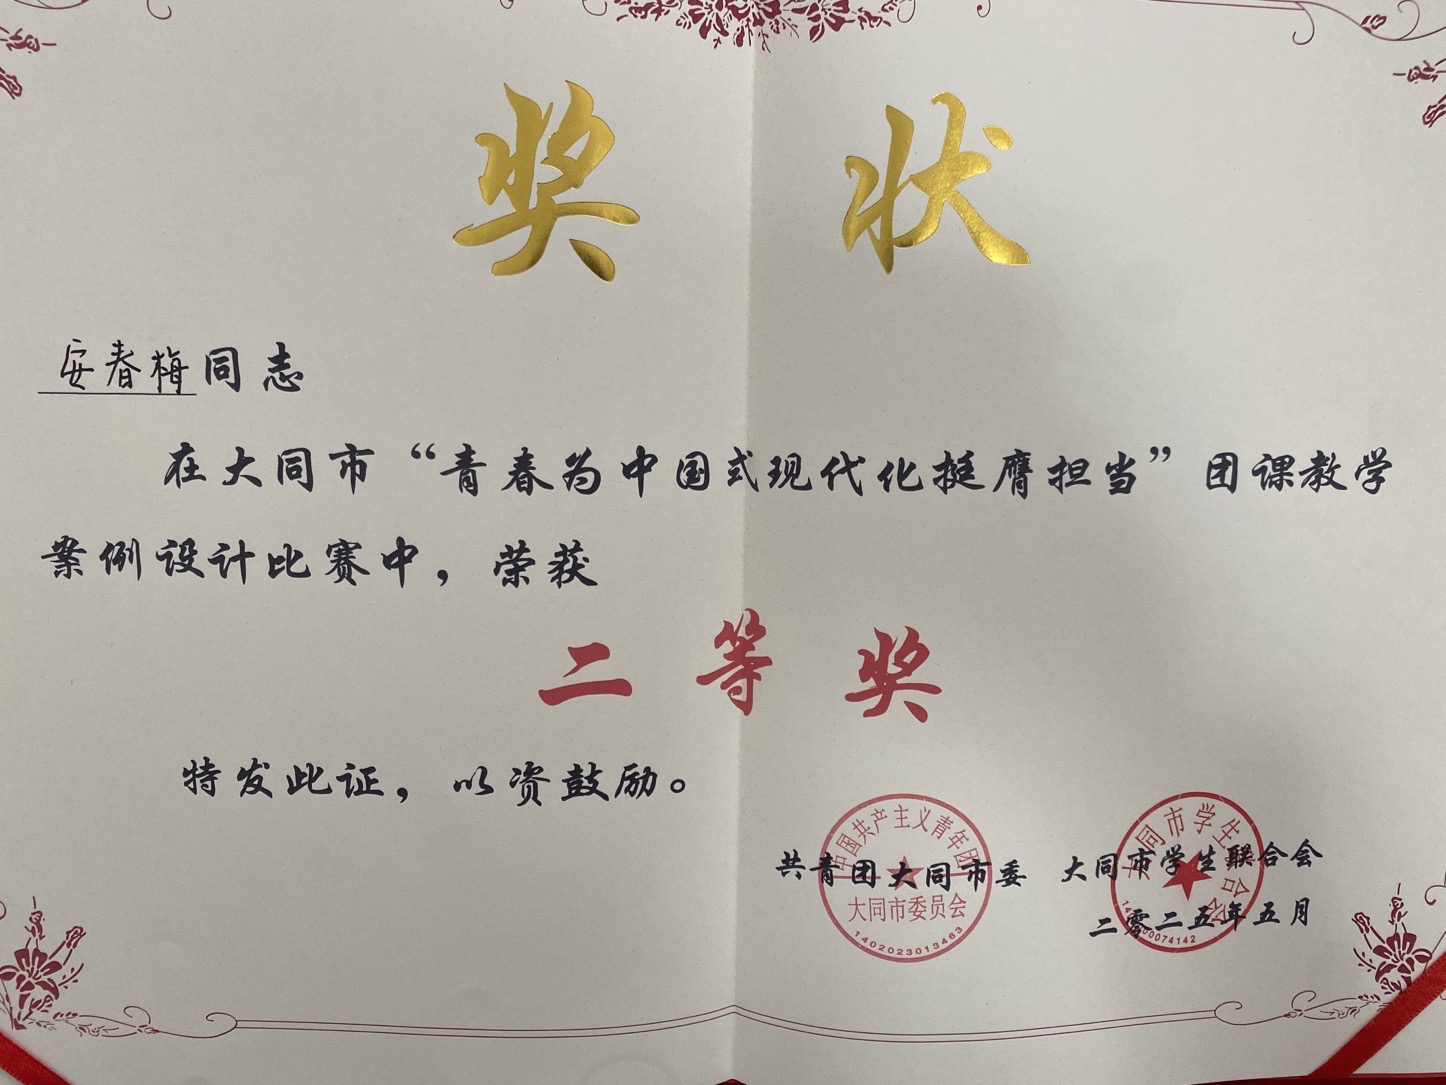 奖状
安春梅同志
在大同市“青春为中国式现代化挺膺担当”团课教学
案例设计比赛中，荣获
二等奖
特发此证，以资鼓励。
共青团大同市委 大同市学生联合会
二零二五年五月
中国共产主义青年团
大同市委员会
1402023013463
大同市学生联合会